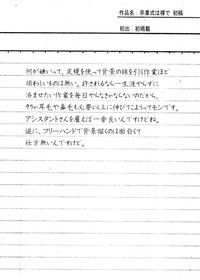 作品名：卒業式は裸で 初稿
初出：初掲載
何が嫌いって、定規を使って背景の線を引く作業ほど
煩わしいものは無い。許されるなら一生涯やらずに
済ませたい作業を毎日やらなきゃならないのだから、
そりゃ耳毛や鼻毛も必要以上に伸びてよってもンです。
アシスタントさんを雇えば一番良いんですけどね。
逆に、フリーハンドで背景描くのは面白くて
仕方無いんですけど。